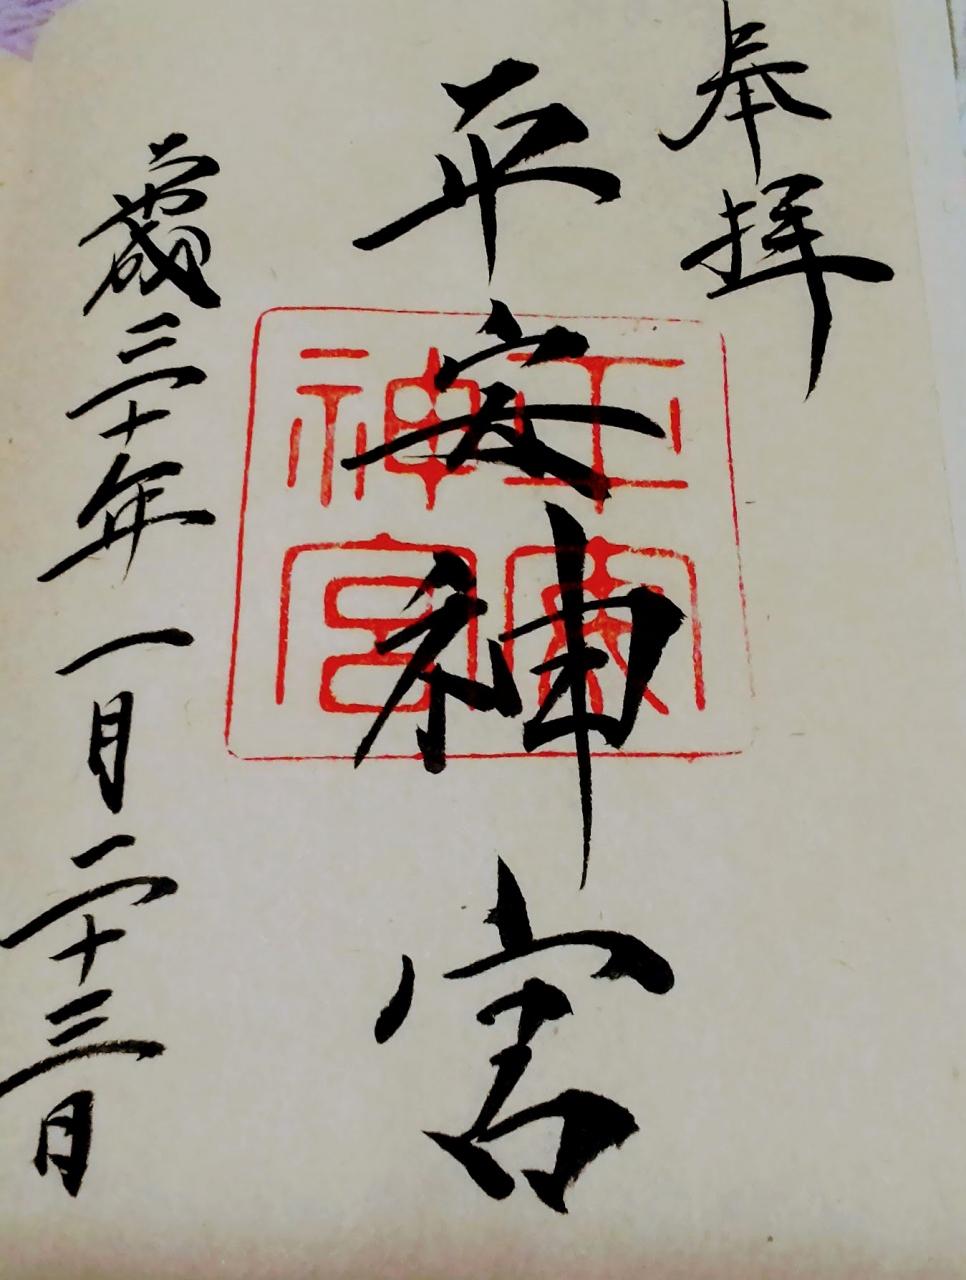 奉拝
平安神宮
歳三十年一月二十三日
平安
神宮